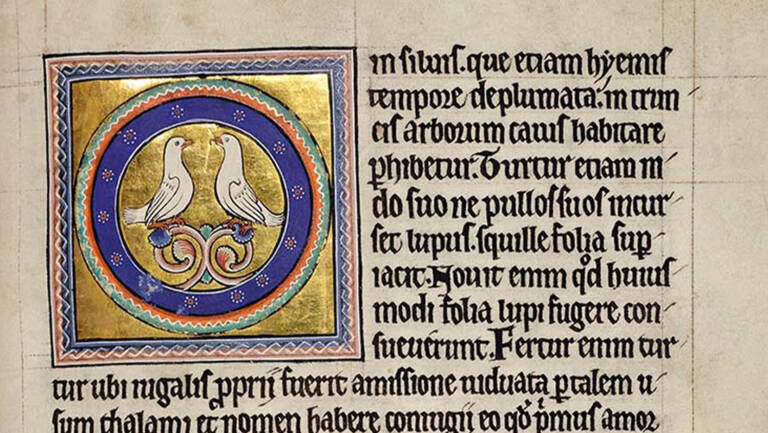 in siluis. que etiam hyemis
tempore deplumata: in trun
cis arborum cauis habitare
phibetur. Turtur etiam ni
do suo ne pullos suos incur
set lupus. squille folia sup
iacit. Nouit enim qd huius
modi folia lupi fugere con
sueuerunt. Fertur enim tur
tur ubi iugalis pprii fuerit amissione uiduata ptalem u
sum thalami et nomen habere coniugii eo qd pmus amor